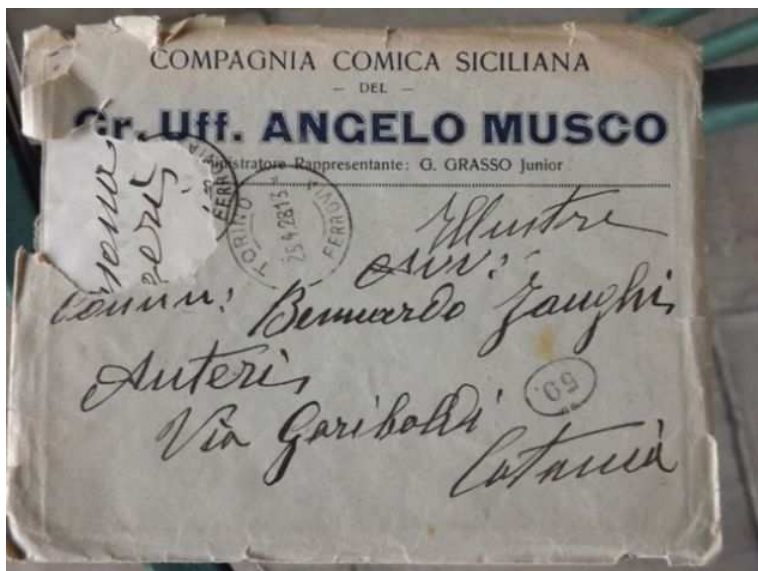 COMPAGNIA COMICA SICILIANA
- DEL -
Gr. Uff. ANGELO MUSCO
ministratore Rappresentante: G. GRASSO Junior
TORINO FERROVIA
25.4.28 13
FERROVIA
Illustre
Avv:
Comm: Bernardo Zanghi
Auteri
Via Garibaldi
Catania
59